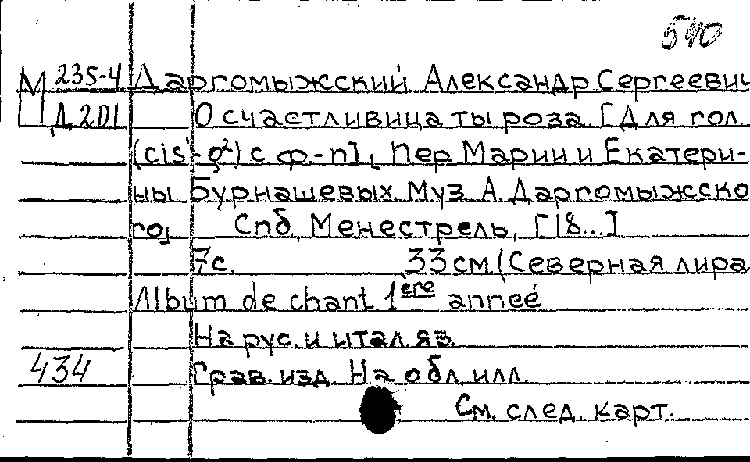 540
М 235-4 Даргомыжский Александр Сергеевич
Д 201 О счастливица ты роза. [Для гол.
(cis¹-g²) с ф.-п], Пер Марии и Екатери-
ны Бурнашевых. Муз А. Даргомыжско
го, Спб, Менестрель, [18..]
7с. 33 см (Северная лира
Album de chant 1ère anneé
На рус. и итал. яз.
434 Грав. изд. На обл. илл.
См. след. карт.